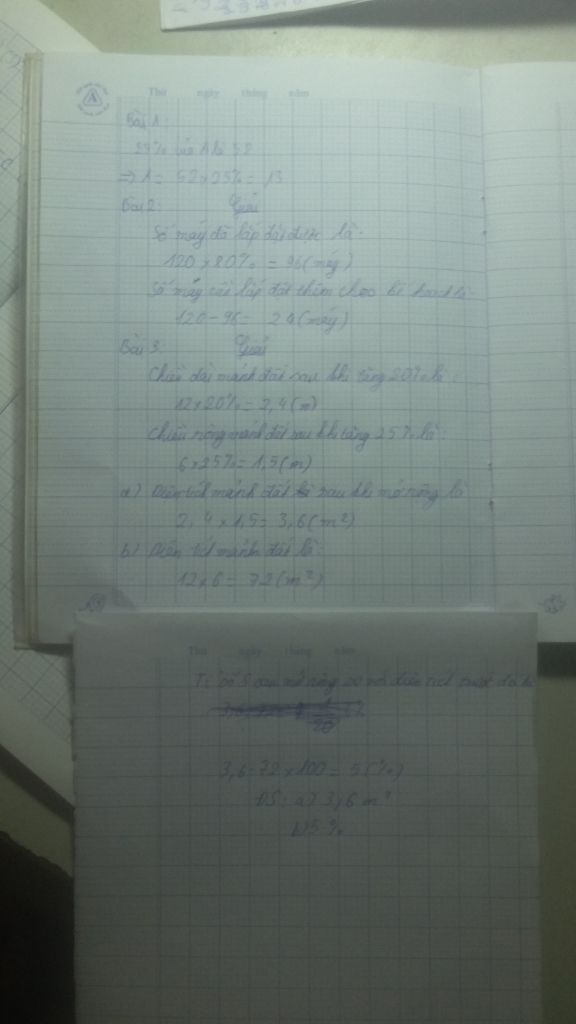 Thứ ngày tháng năm
Bài 1:
25% của A là 52
=> A = 52 x 25% = 13
Bài 2: Giải
Số máy đã lắp đặt được là:
120 x 80% = 96 (máy)
Số máy cần lắp đặt thêm theo kế hoạch là:
120 - 96 = 24 (máy)
Bài 3: Giải
Chiều dài mảnh đất sau khi tăng 20% là:
12 x 20% = 2,4 (m)
Chiều rộng mảnh đất sau khi tăng 25% là:
6 x 25% = 1,5 (m)
a) Diện tích mảnh đất sau khi mở rộng là
2,4 x 1,5 = 3,6 (m²)
b) Diện tích mảnh đất là:
12 x 6 = 72 (m²)
Thứ ngày tháng năm
Tỉ số S sau mở rộng so với diện tích trước đó là
20
3,6 : 72 x 100 = 5 (%)
ĐS: a) 3,6 m²
b) 5%